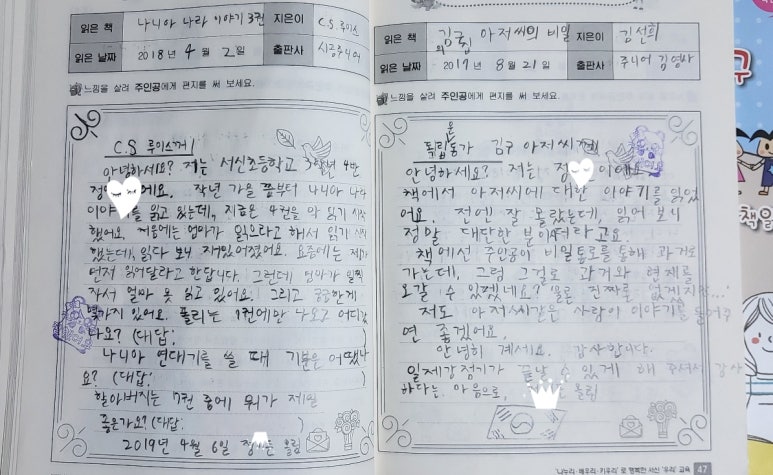 읽은 책 나니아 나라 이야기 3권 지은이 C.S.루이스
읽은 날짜 2018년 4월 2일 출판사 시공주니어
느낌을 살려 주인공에게 편지를 써 보세요.
C.S 루이스께!
안녕하세요? 저는 서신초등학교 3학년 4반
정 예요. 작년 가을 쯤부터 나니아 나라
이야기를 읽고 있는데, 지금은 4권을 막 읽기 시작
했어요. 처음에는 엄마가 읽으라고 해서 읽기 시작
했는데, 읽다 보니 재밌어졌어요. 요즘에는 제가
먼저 읽어달라고 한답니다. 그런데 엄마가 일찍
자서 얼마 못 읽고 있어요. 그리고 궁금한게
몇가지 있어요. 폴리는 1권에만 나오고 어디갔
나요? (대답:
나니아 연대기를 쓸 때 기분은 어땠나
요? (대답: )
할아버지는 7권 중에 뭐가 제일
좋은가요? (대답: )
2019년 4월 6일 정 올림
읽은 책 김구 아저씨의 비밀 지은이 김선희
읽은 날짜 2017년 8월 21일 출판사 주니어 김영사
느낌을 살려 주인공에게 편지를 써 보세요.
독립운동가 김구 아저씨께!!
안녕하세요? 저는 정 이에요.
책에서 아저씨에 대한 이야기를 읽었
어요. 전엔 잘 몰랐는데, 읽어 보니
정말 대단한 분이더라고요.
책에선 주인공이 비밀통로를 통해 과거로
가는데, 그럼 그걸로 과거와 현재를
오갈 수 있겠네요? 물론 진짜론 없겠지만...
저도 아저씨같은 사람이 이야기를 들려주
면 좋겠어요.
안녕히 계세요. 감사합니다.
일제강점기가 끝날 수 있게 해 주셔서 감사
하다는 마음으로, 올림
'나누리·배우리·키우리'로 행복한 서신 '우리' 교육 47